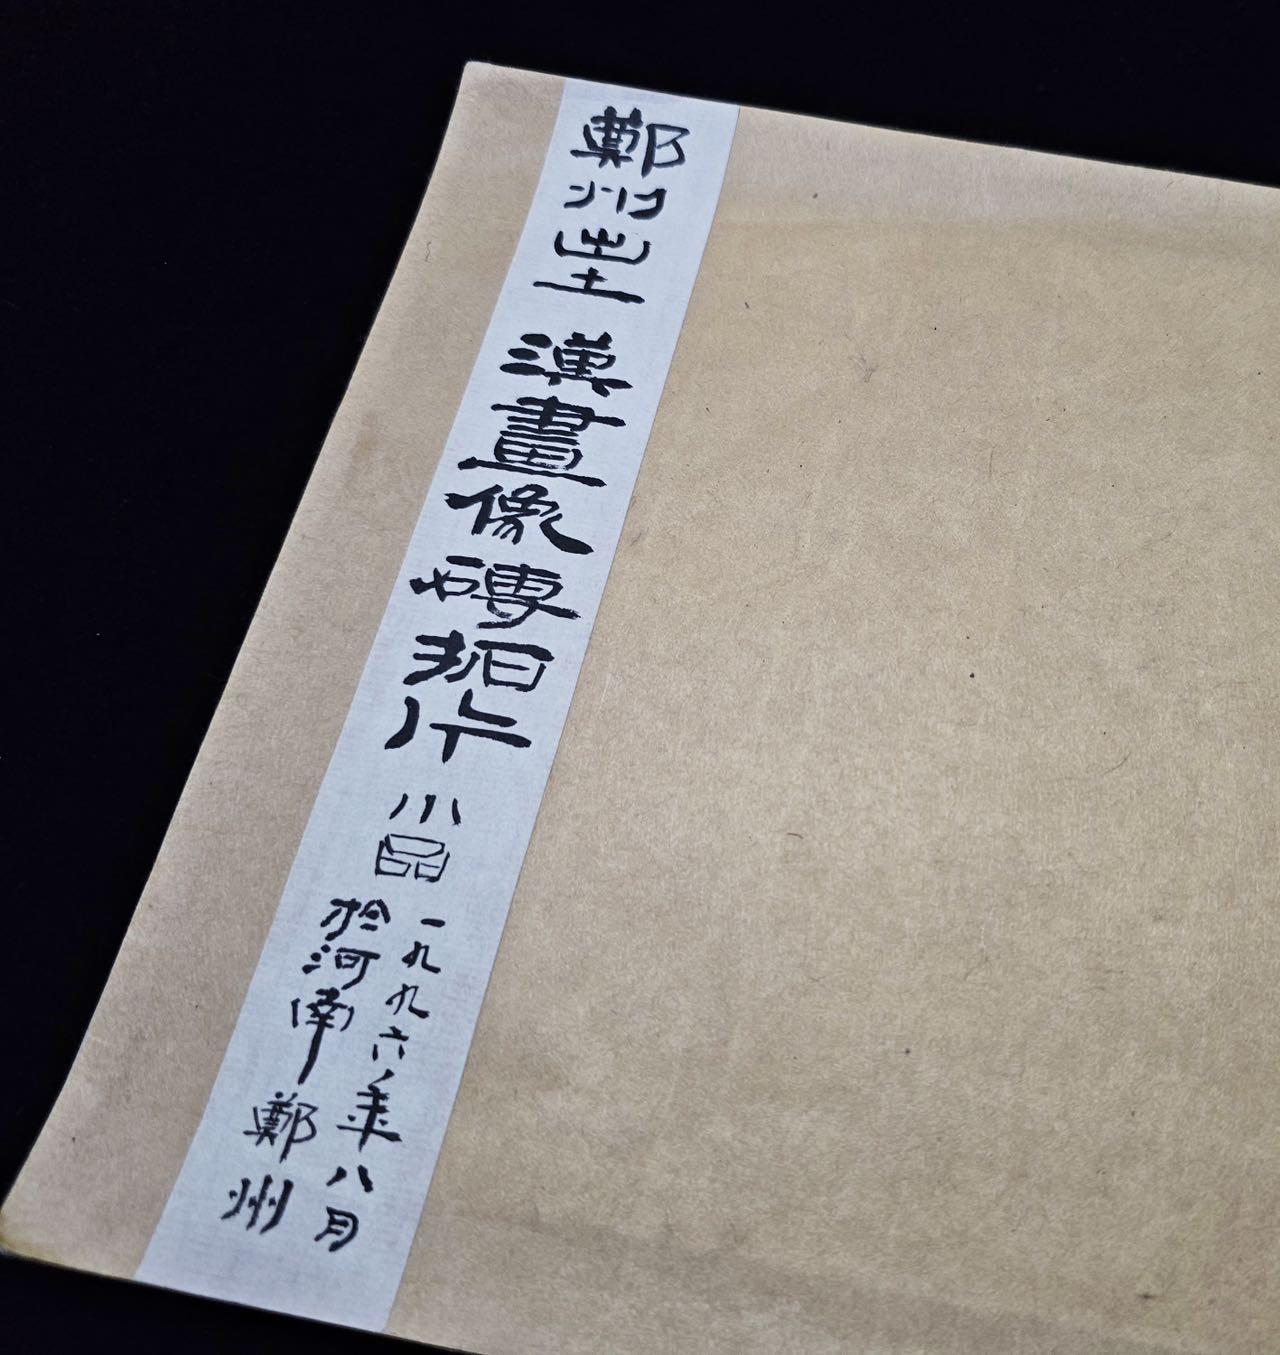 鄭州出土 漢畫像磚拓片小品
一九九六年八月
於河南鄭州